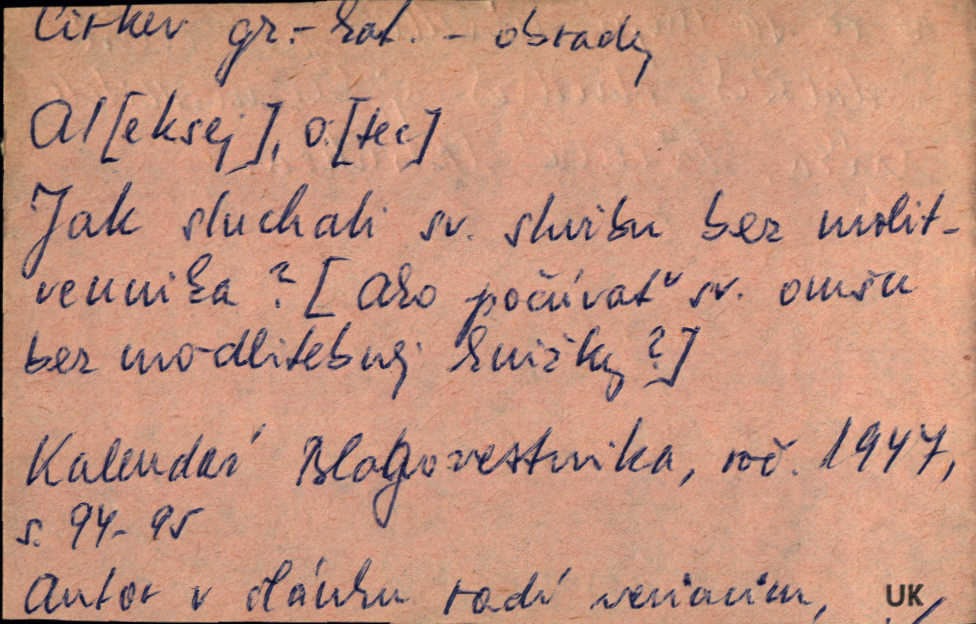 Cirkev gr.-kat. - obrady
Al[eksej], o.[tec]
Jak sluchati sv. službu bez molit-
vennika? [Ako počúvať sv. omšu
bez modlitebnej knižky?]
Kalendar Blagovestnika, roč. 1947,
s. 94-95
Autor v článku radí veriacim,
UK